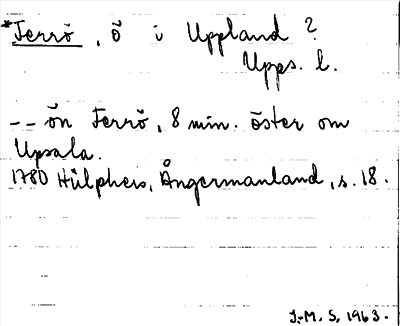 *Ferrö, ö i Uppland?
Upps. l.
-- ön Ferrö, 8 min. öster om
Upsala.
1780 Hülphers, Ångermanland, s. 18.
J.-M. S. 1963.